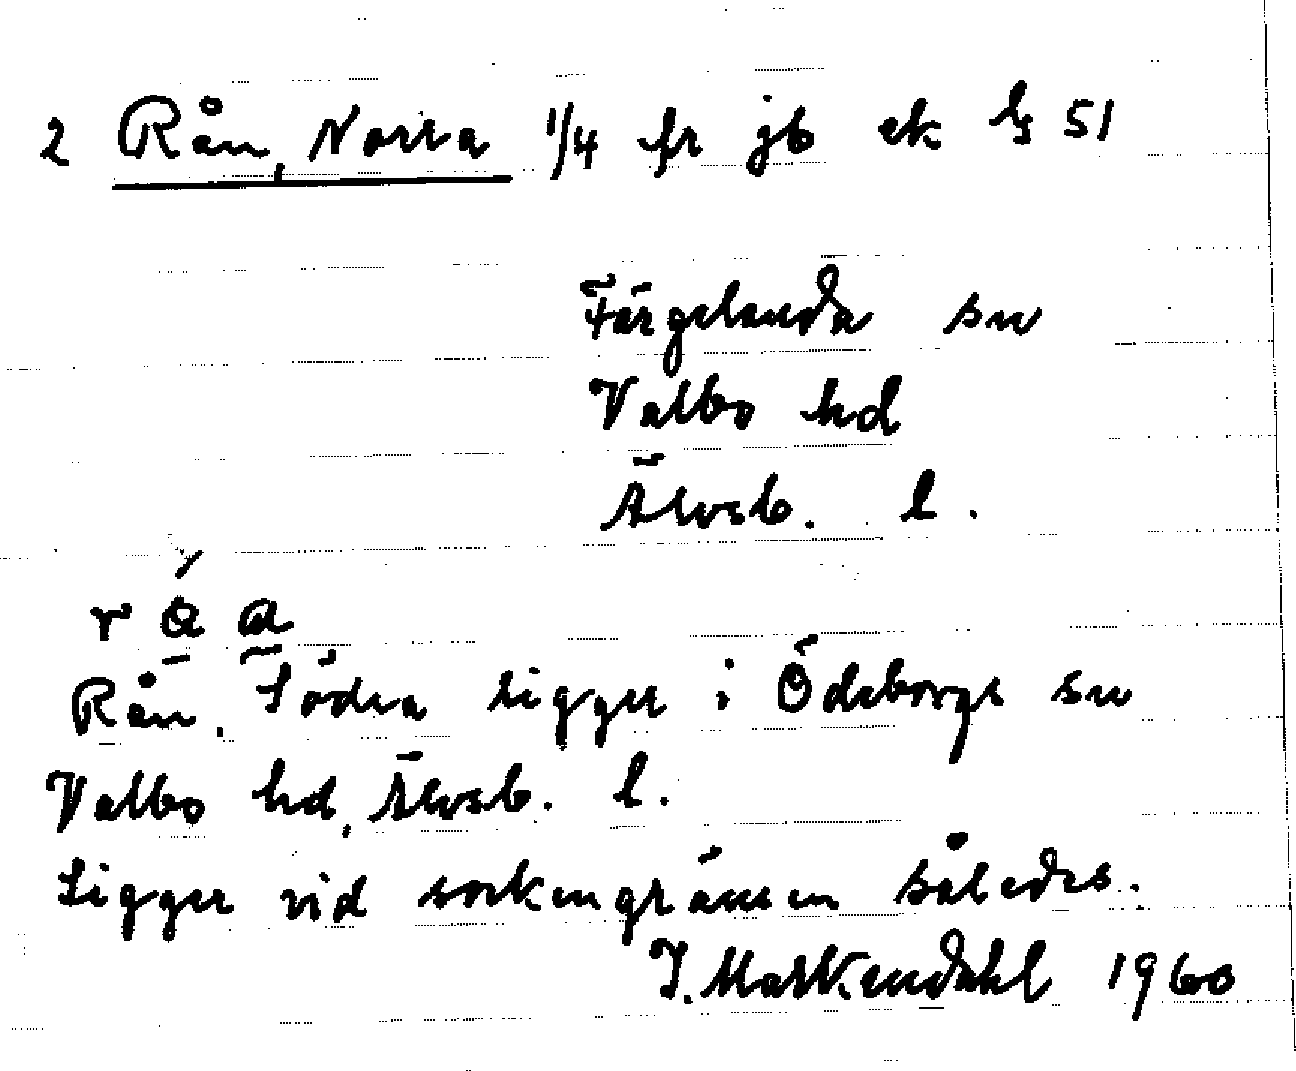 2 Rån, Norra 1/4 fr jb ek § 51
Färgelanda sn
Valbo hd
Älvsb. l.
r a̱ a̱
Rån, Södra ligger i Ödeborgs sn
Valbo hd, Älvsb. l.
Ligger vid sockengränsen således.
J. Markendahl 1960